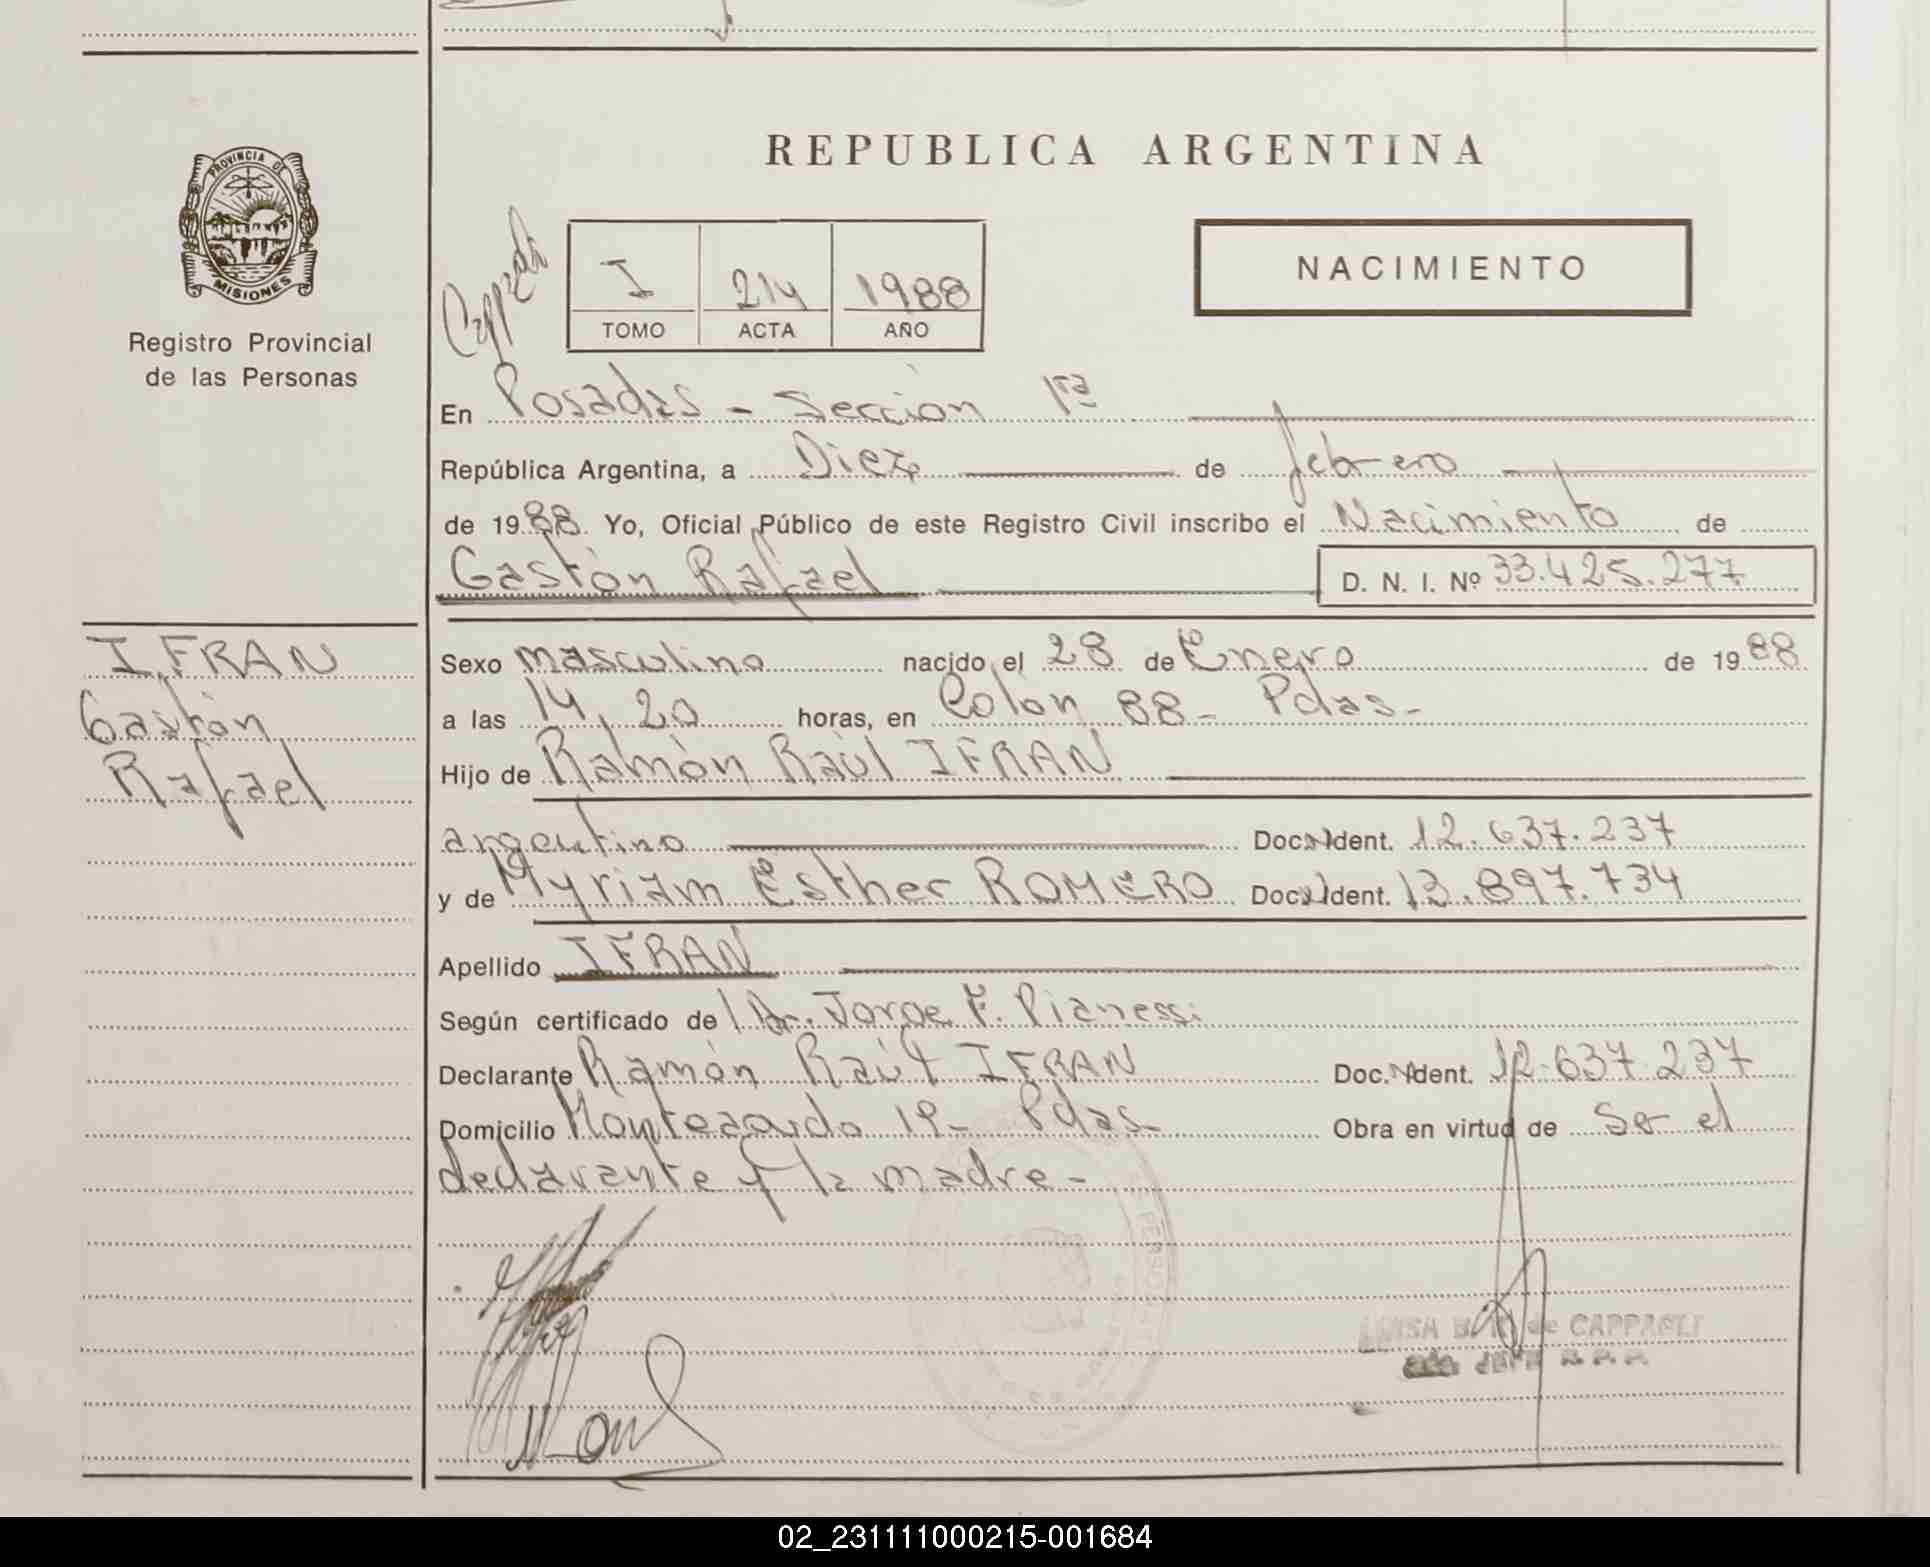 REPUBLICA ARGENTINA
PROVINCIA DE
MISIONES
Registro Provincial
de las Personas
I 214 1988
TOMO ACTA AÑO
NACIMIENTO
En Posadas - Sección 1ra
República Argentina, a Diez de febrero
de 1988. Yo, Oficial Público de este Registro Civil inscribo el Nacimiento de
Gastón Rafael D. N. I. Nº 33.425.277
IFRAN
Gastón
Rafael
Sexo masculino nacido el 28 de Enero de 1988
a las 14,20 horas, en Colón 88 - Pdas -
Hijo de Ramón Raúl IFRAN
argentino Doc. Ident. 12.637.237
y de Myriam Esther ROMERO Doc. Ident. 13.897.734
Apellido IFRAN
Según certificado del Dr. Jorge F. Pianessi
Declarante Ramón Raúl IFRAN Doc. Ident. 12.637.237
Domicilio Monteagudo 19 - Pdas - Obra en virtud de Ser el
declarante y la madre -
de CAPPAGLI
02_231111000215-001684